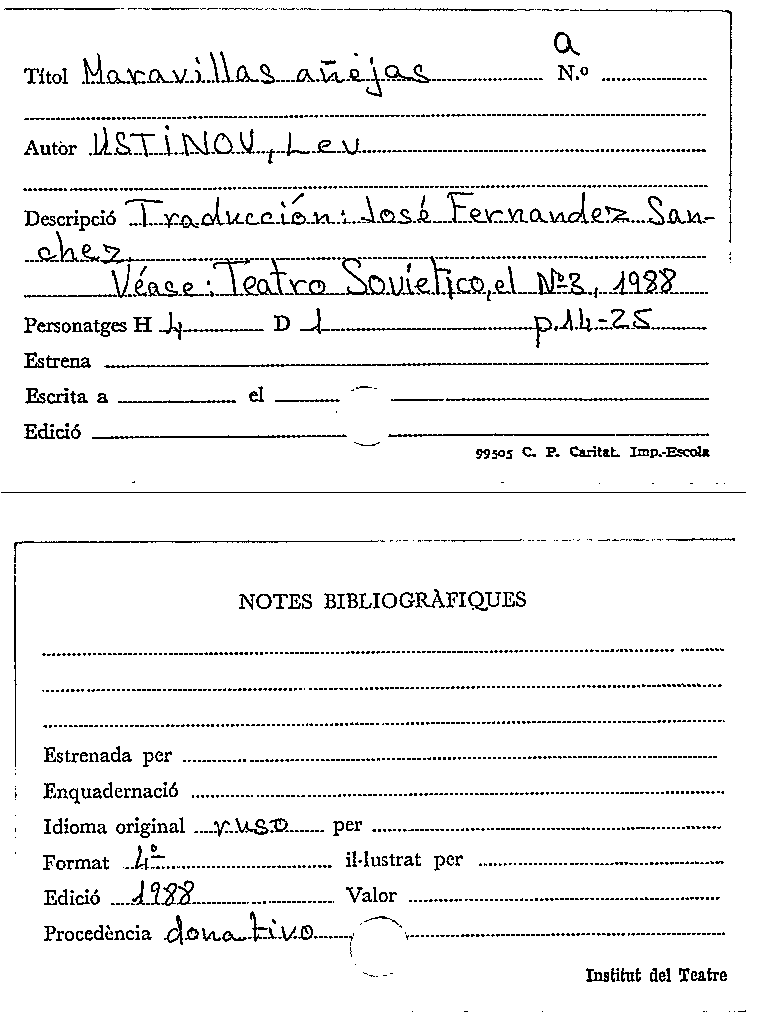 a
Títol Maravillas añejas N.º
Autor USTINOV, Lev
Descripció Traducción: José Fernandez San-
chez.
Véase: Teatro Sovietico, el Nº3, 1988
Personatges H 4 D 1 p.14-25
Estrena
Escrita a el
Edició
99505 C. P. Caritat. Imp.-Escola
NOTES BIBLIOGRÀFIQUES
Estrenada per
Enquadernació
Idioma original ruso per
Format 4º il·lustrat per
Edició 1988 Valor
Procedència donativo
Institut del Teatre